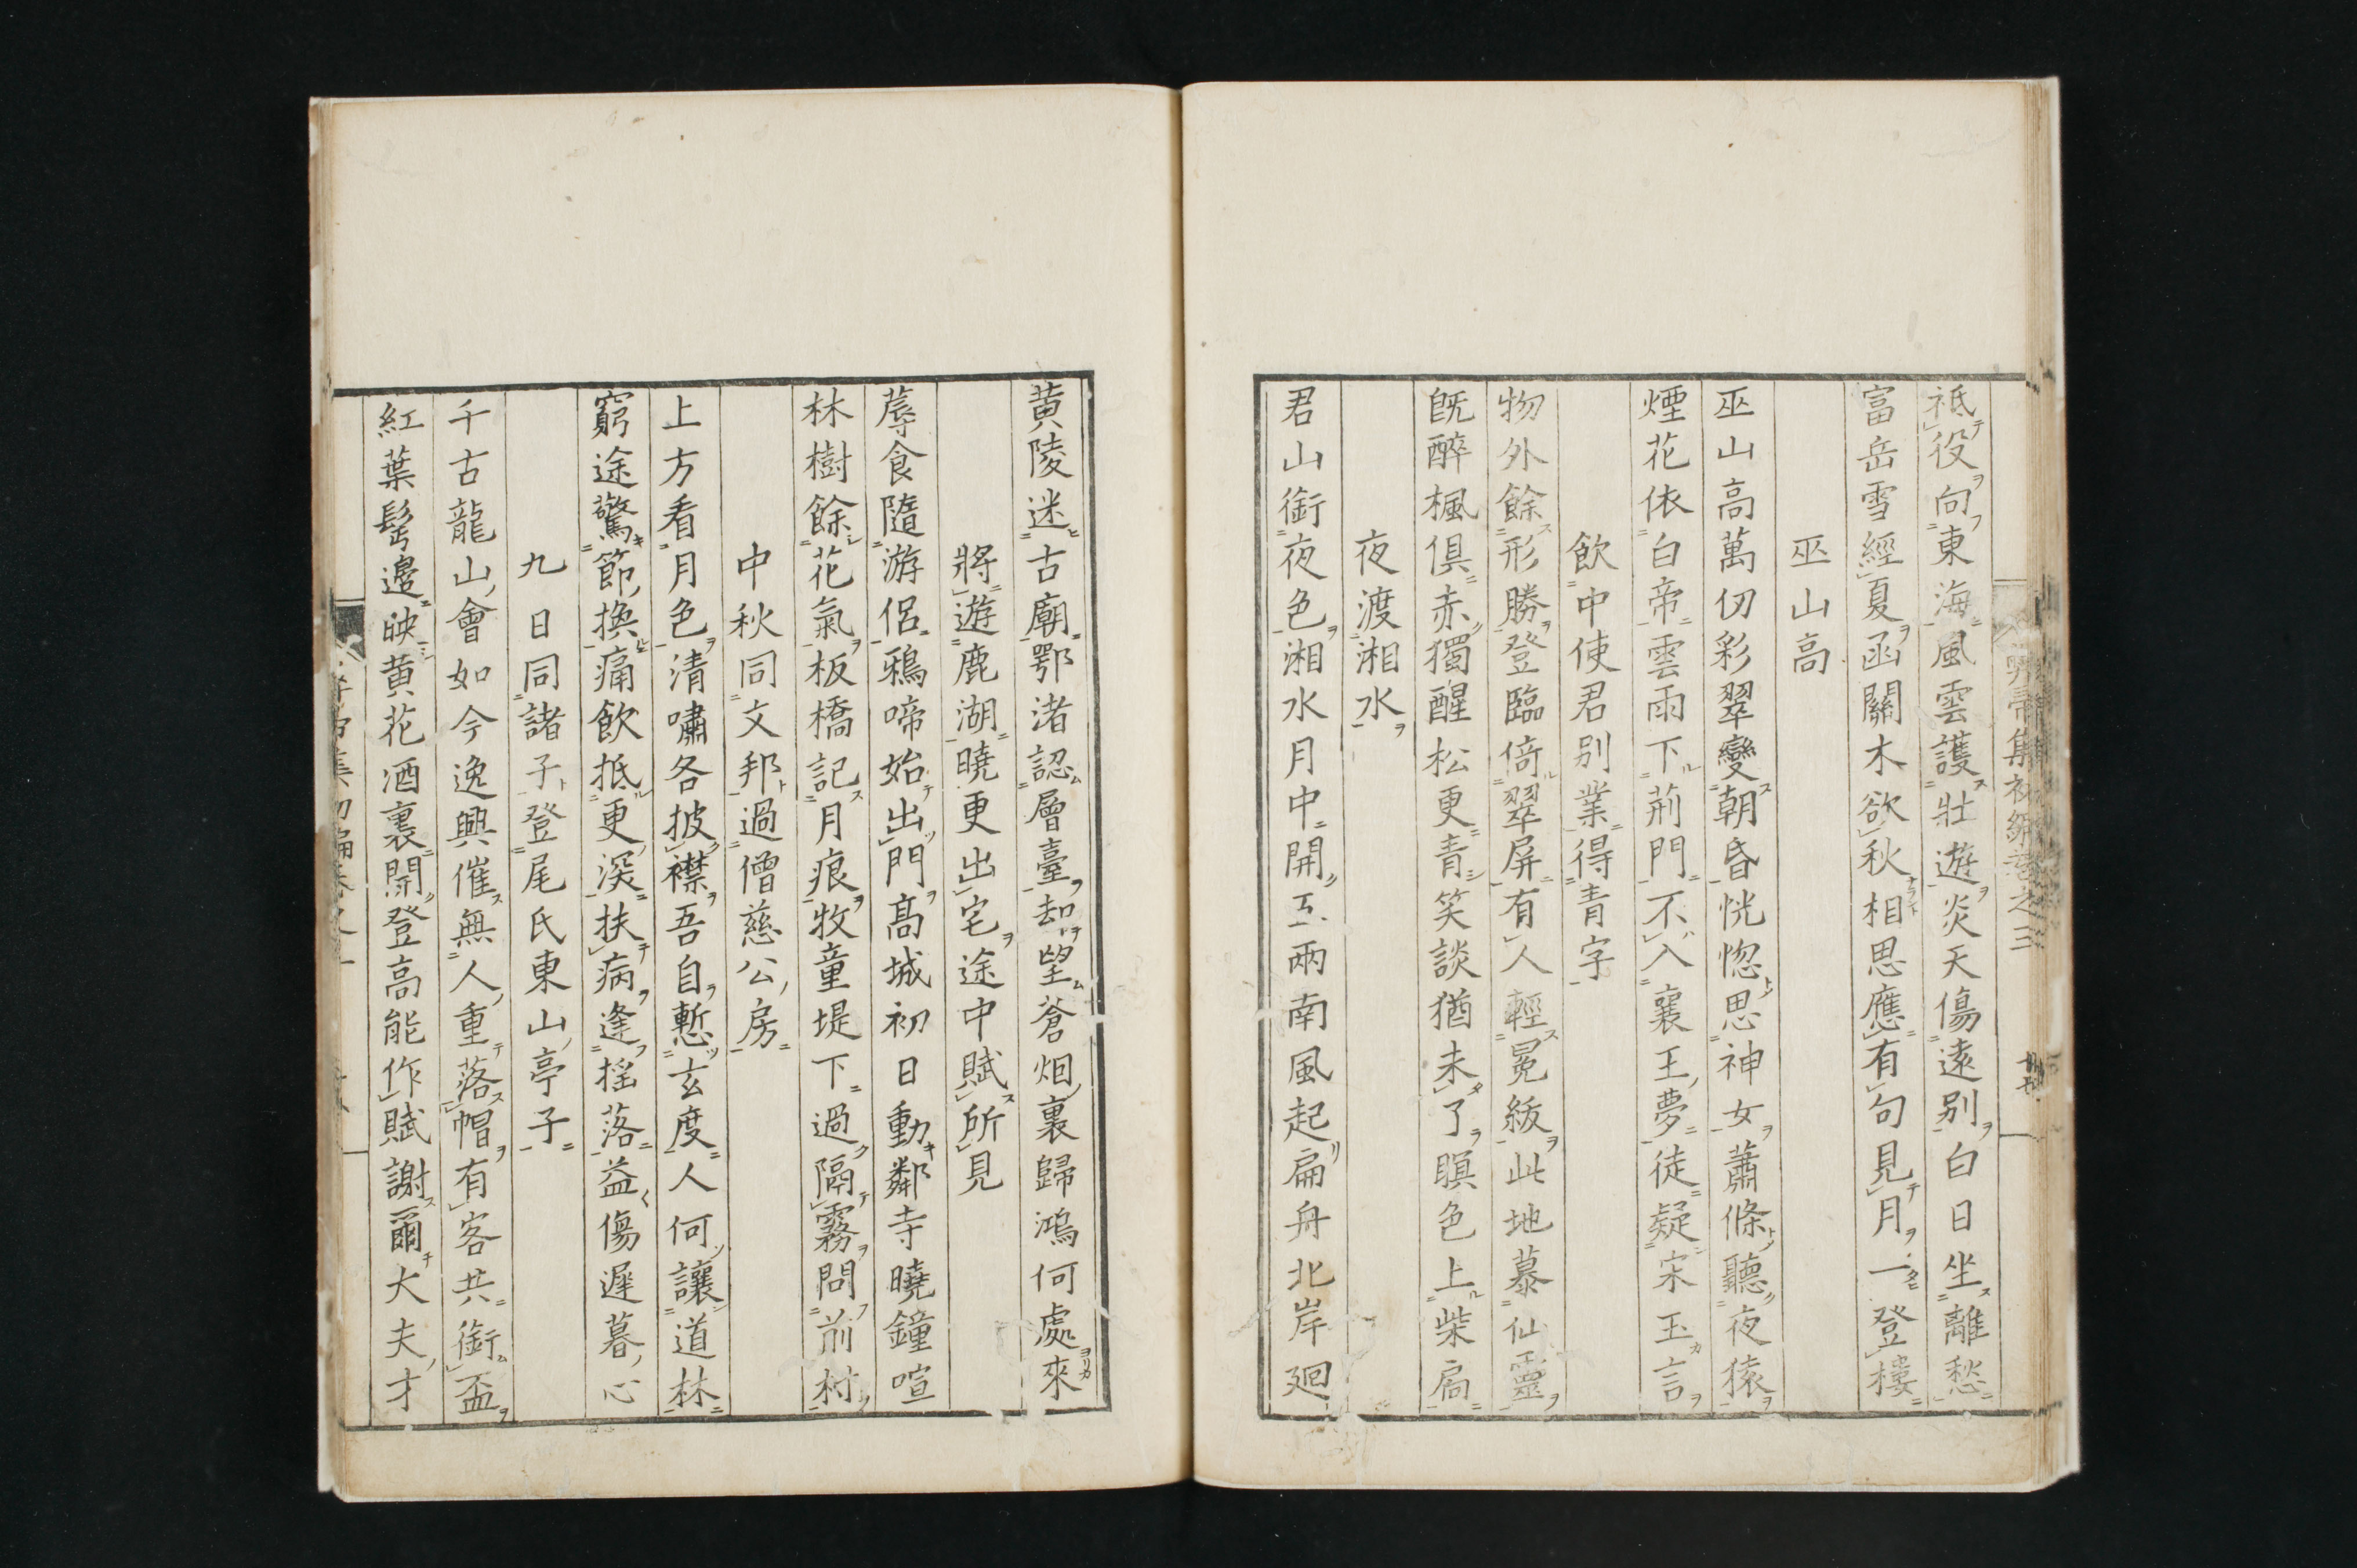 祗役向東海風雲護壯遊炎天傷遠別白日坐離愁
富岳雪經夏函關木欲秋相思應有句見月一登樓
巫山高
巫山高萬仞彩翠變朝昏恍惚思神女蕭條聽夜猿
煙花依白帝雲雨下荊門不入襄王夢徒疑宋玉言
飲中使君別業得青字
物外餘形勝登臨倚翠屏有人輕冕紱此地慕仙靈
既醉楓俱赤獨醒松更青笑談猶未了瞑色上柴扃
夜渡湘水
君山銜夜色湘水月中開五兩南風起扁舟北岸廻
黄陵迷古廟鄂渚認層臺却望蒼烟裏歸鴻何處來
將遊鹿湖曉更出宅途中賦所見
蓐食隨游侶鴉啼始出門高城初日動鄰寺曉鐘喧
林樹餘花氣板橋記月痕牧童堤下過隔霧問前村
中秋同文邦過僧慈公房
上方看月色清嘯各披襟吾自慙玄度人何讓道林
窮途驚節換痛飲抵更深扶病逢揺落益傷遲暮心
九日同諸子登尾氏東山亭子
千古龍山會如今逸興催無人重落帽有客共銜盃
紅葉髩邊映黄花酒裏開登高能作賦謝爾大夫才